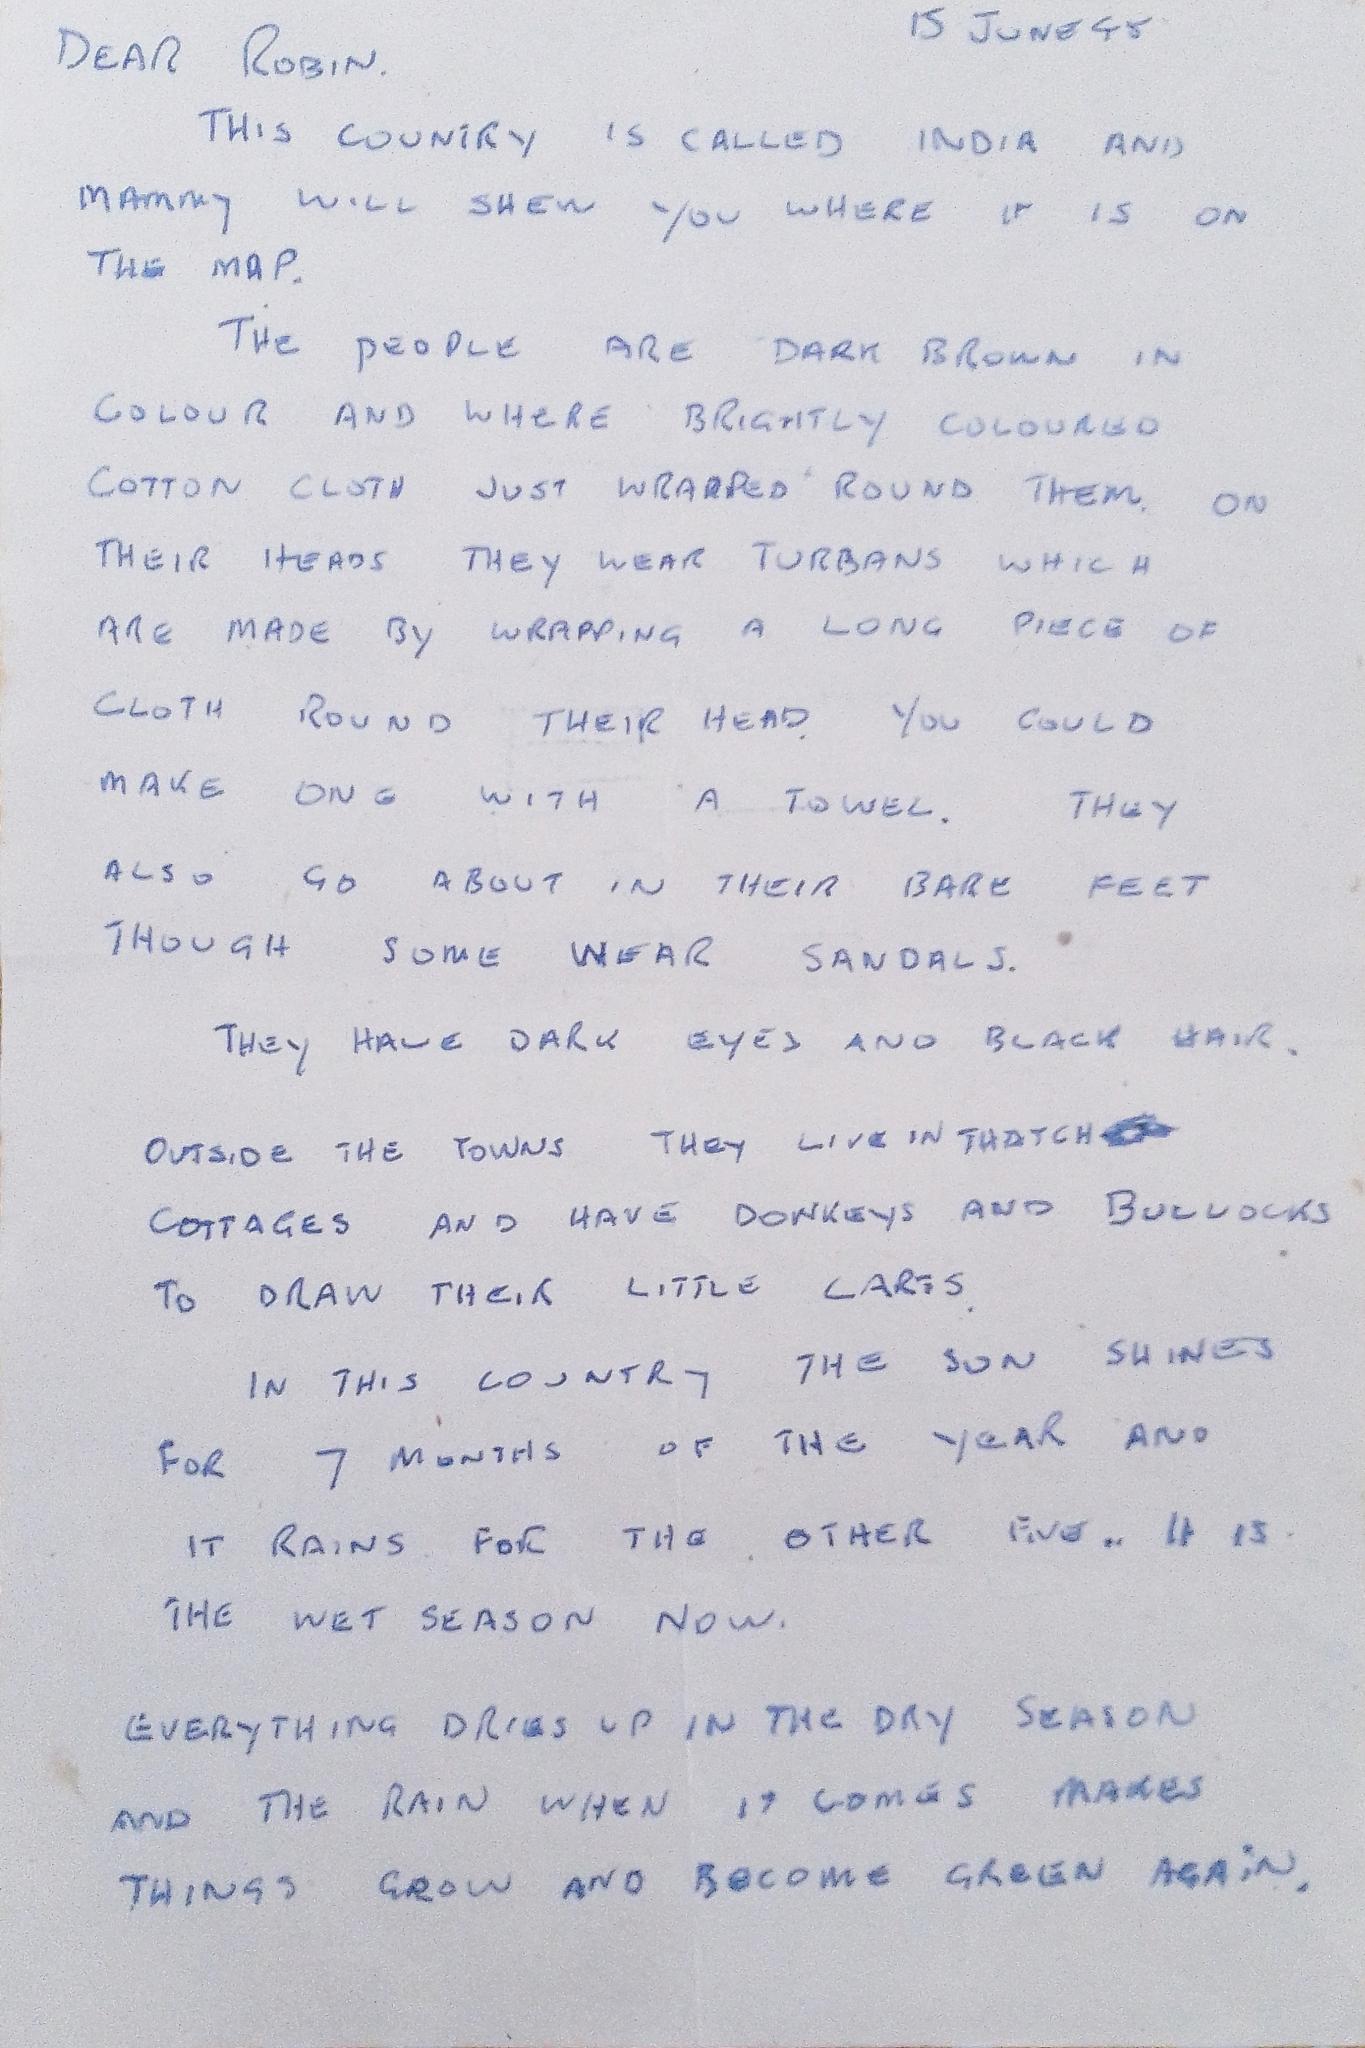 15 JUNE 45
DEAR ROBIN.
THIS COUNTRY IS CALLED INDIA AND
MAMMY WILL SHEW YOU WHERE IT IS ON
THE MAP.
THE PEOPLE ARE DARK BROWN IN
COLOUR AND WHERE BRIGHTLY COLOURED
COTTON CLOTH JUST WRAPPED ROUND THEM. ON
THEIR HEADS THEY WEAR TURBANS WHICH
ARE MADE BY WRAPPING A LONG PIECE OF
CLOTH ROUND THEIR HEAD. YOU COULD
MAKE ONE WITH A TOWEL. THEY
ALSO GO ABOUT IN THEIR BARE FEET
THOUGH SOME WEAR SANDALS.
THEY HAVE DARK EYES AND BLACK HAIR.
OUTSIDE THE TOWNS THEY LIVE IN THATCH
COTTAGES AND HAVE DONKEYS AND BULLOCKS
TO DRAW THEIR LITTLE CARTS.
IN THIS COUNTRY THE SUN SHINES
FOR 7 MONTHS OF THE YEAR AND
IT RAINS FOR THE OTHER FIVE.. IT IS
THE WET SEASON NOW.
EVERYTHING DRIES UP IN THE DRY SEASON
AND THE RAIN WHEN IT COMES MAKES
THINGS GROW AND BECOME GREEN AGAIN.